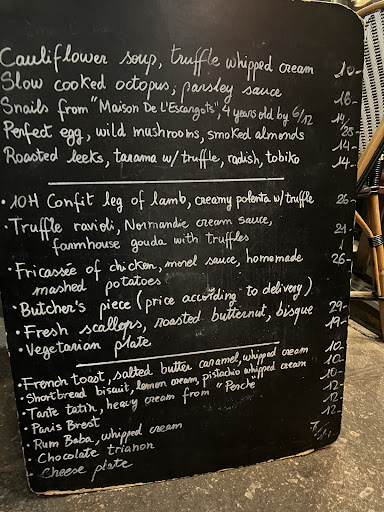 Cauliflower soup, truffle whipped cream 10-
Slow cooked octopus, parsley sauce 16-
Snails from "Maison De L'Escargots", 4 years old by 6/12 14/28-
Perfect egg, wild mushrooms, smoked almonds 14-
Roasted leeks, tarama w/ truffle, radish, tobiko 14-
• 10H Confit leg of lamb, creamy polenta w/ truffle 26-
• Truffle ravioli, Normandie cream sauce, 21-
farmhouse gouda with truffles
• Fricassée of chicken, morel sauce, homemade 26-
mashed potatoes
• Butcher's piece (price according to delivery)
• Fresh scallops, roasted butternut, bisque 29-
• Vegetarian plate 19-
• French toast, salted butter caramel, whipped cream 10-
• Shortbread biscuit, lemon cream, pistachio whipped cream 10-
• Tarte tatin, heavy cream from "Perche" 10-
• Paris Brest 12-
• Rum Baba, whipped cream 12-
• Chocolate trianon 12-
• Cheese plate